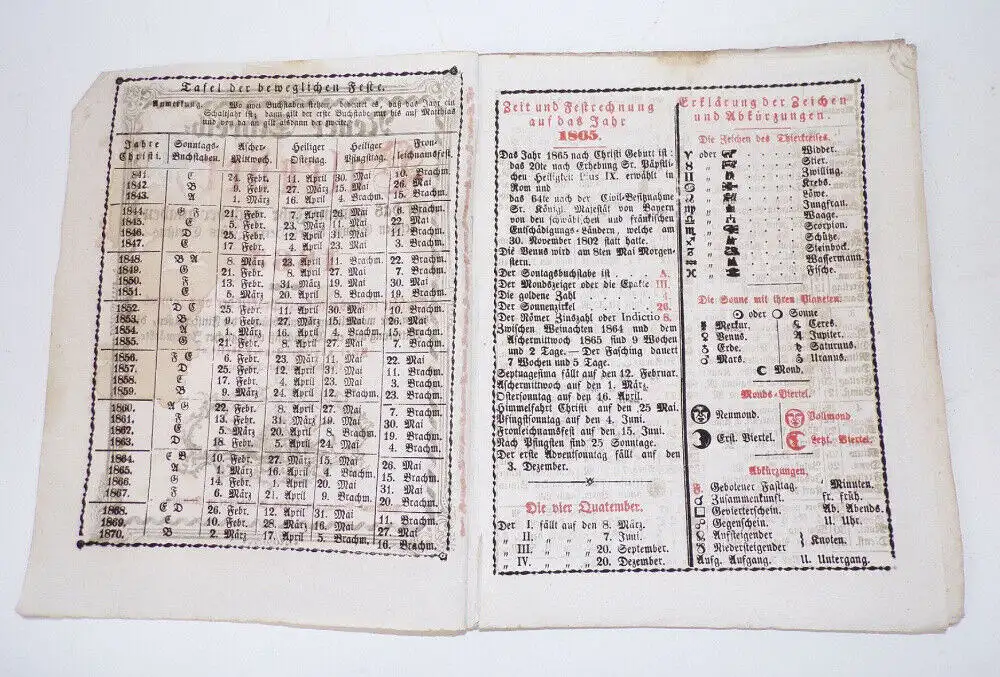 Tafel der beweglichen Feste.
Anmerkung. Wo zwei Buchstaben stehen, bedeutet es, daß das Jahr ein
Schaltjahr ist; dann gilt der erste Buchstabe nur bis auf Matthias
und von da an gilt alsdann der zweite.
Jahre Christi. Sonntags-Buchstaben. Ascher-Mittwoch. Heiliger Ostertag. Heiliger Pfingsttag. Fron-leichnamsfest
841. C 24. Febr. 11. April 30. Mai 10. Brachm.
1842. B 9. Febr. 27. März 15. Mai 26. Mai
1843. A 1. März 16. April 4. Brachm. 15. Brachm.
1844. G F 21. Febr. 7. April 26. Mai 6. Brachm.
1845. E 5. Febr. 23. März 11. Mai 22. Mai
1846. D 25. Febr. 12. April 31. Mai 11. Brachm.
1847. C 17. Febr. 4. April 23. Mai 3. Brachm.
1848. B A 8. März 23. April 11. Brachm. 22. Brachm.
1849. G 21. Febr. 8. April 27. Mai 7. Brachm.
1850. F 13. Febr. 31. März 19. Mai 30. Mai
1851. E 5. März 20. April 8. Brachm. 19. Brachm.
1852. D C 25. Febr. 11. April 30. Mai 10. Brachm.
1853. B 9. Febr. 27. März 15. Mai 26. Mai
1854. A 1. März 16. April 4. Brachm. 15. Brachm.
1855. G 21. Febr. 8. April 27. Mai 7. Brachm.
1856. F E 6. Febr. 23. März 11. Mai 22. Mai
1857. D 25. Febr. 12. April 31. Mai 11. Brachm.
1858. C 17. Febr. 4. April 23. Mai 3. Brachm.
1859. B 9. März 24. April 12. Brachm. 23. Brachm.
1860. A G 22. Febr. 8. April 27. Mai 7. Brachm.
1861. F 13. Febr. 31. März 19. Mai 30. Mai
1862. E 5. März 20. April 8. Brachm. 19. Brachm.
1863. D 18. Febr. 5. April 24. Mai 4. Brachm.
1864. C B 10. Febr. 27. März 15. Mai 26. Mai
1865. A 1. März 16. April 4. Brachm. 15. Brachm.
1866. G 14. Febr. 1. April 20. Mai 31. Mai
1867. F 6. März 21. April 9. Brachm. 20. Brachm.
1868. E D 26. Febr. 12. April 31. Mai 11. Brachm.
1869. C 10. Febr. 28. März 16. Mai 27. Mai
1870. B 2. März 17. April 5. Brachm. 16. Brachm.
Zeit und Festrechnung
auf das Jahr
1865.
Das Jahr 1865 nach Christi Geburt ist:
das 20te nach Erhebung Sr. Päpstli-
chen Heiligkeit Pius IX. erwählt in
Rom und
das 64te nach der Civil-Besitznahme
Sr. Königl. Majestät von Bayern
von den schwäbischen und fränkischen
Entschädigungs-Ländern, welche am
30. November 1802 statt hatte.
Die Venus wird am 8ten Mai Morgen-
stern.
Der Sontagsbuchstabe ist . . A.
Der Mondszeiger oder die Epakte III.
Die goldene Zahl . . . . 4.
Der Sonnenzirkel . . . . 26.
Der Römer Zinszahl oder Indictio 8.
Zwischen Weinachten 1864 und dem
Aschermittwoch 1865 sind 9 Wochen
und 2 Tage. — Der Fasching dauert
7 Wochen und 5 Tage.
Septuagesima fällt auf den 12. Februar.
Aschermittwoch auf den 1. März.
Ostersonntag auf den 16. April.
Himmelfahrt Christi auf den 25 Mai.
Pfingstsonntag auf den 4. Juni.
Fronleichnamsfest auf den 15. Juni.
Nach Pfingsten sind 25 Sonntage.
Der erste Adventsonntag fällt auf den
3. Dezember.
Die vier Quatember.
Der I. fällt auf den 8. März.
„ II. „ „ „ 7. Juni.
„ III. „ „ „ 20. September.
„ IV. „ „ „ 20. Dezember.
Erklärung der Zeichen
und Abkürzungen.
Die Zeichen des Thierkreises.
♈ oder Widder.
♉ „ Stier.
♊ „ Zwilling.
♋ „ Krebs.
♌ „ Löwe.
♍ „ Jungfrau.
♎ „ Waage.
♏ „ Scorpion.
♐ „ Schütze.
♑ „ Steinbock.
♒ „ Wassermann.
♓ „ Fische.
Die Sonne mit ihren Planeten.
☉ oder ○ Sonne
☿ Merkur. ⚳ Ceres.
♀ Venus. ♃ Jupiter.
♁ Erde. ♄ Saturnus.
♂ Mars. ♅ Uranus.
☾ Mond.
Monds-Viertel.
Neumond. Vollmond
Erst. Viertel. Letzt. Viertel.
Abkürzungen.
F. Gebotener Fasttag. Minuten.
☌ Zusammenkunft. fr. früh.
□ Gevierterschein. Ab. Abends.
☍ Gegenschein. U. Uhr.
☊ Aufsteigender
☋ Niedersteigender } Knoten.
Aufg. Aufgang. U. Untergang.